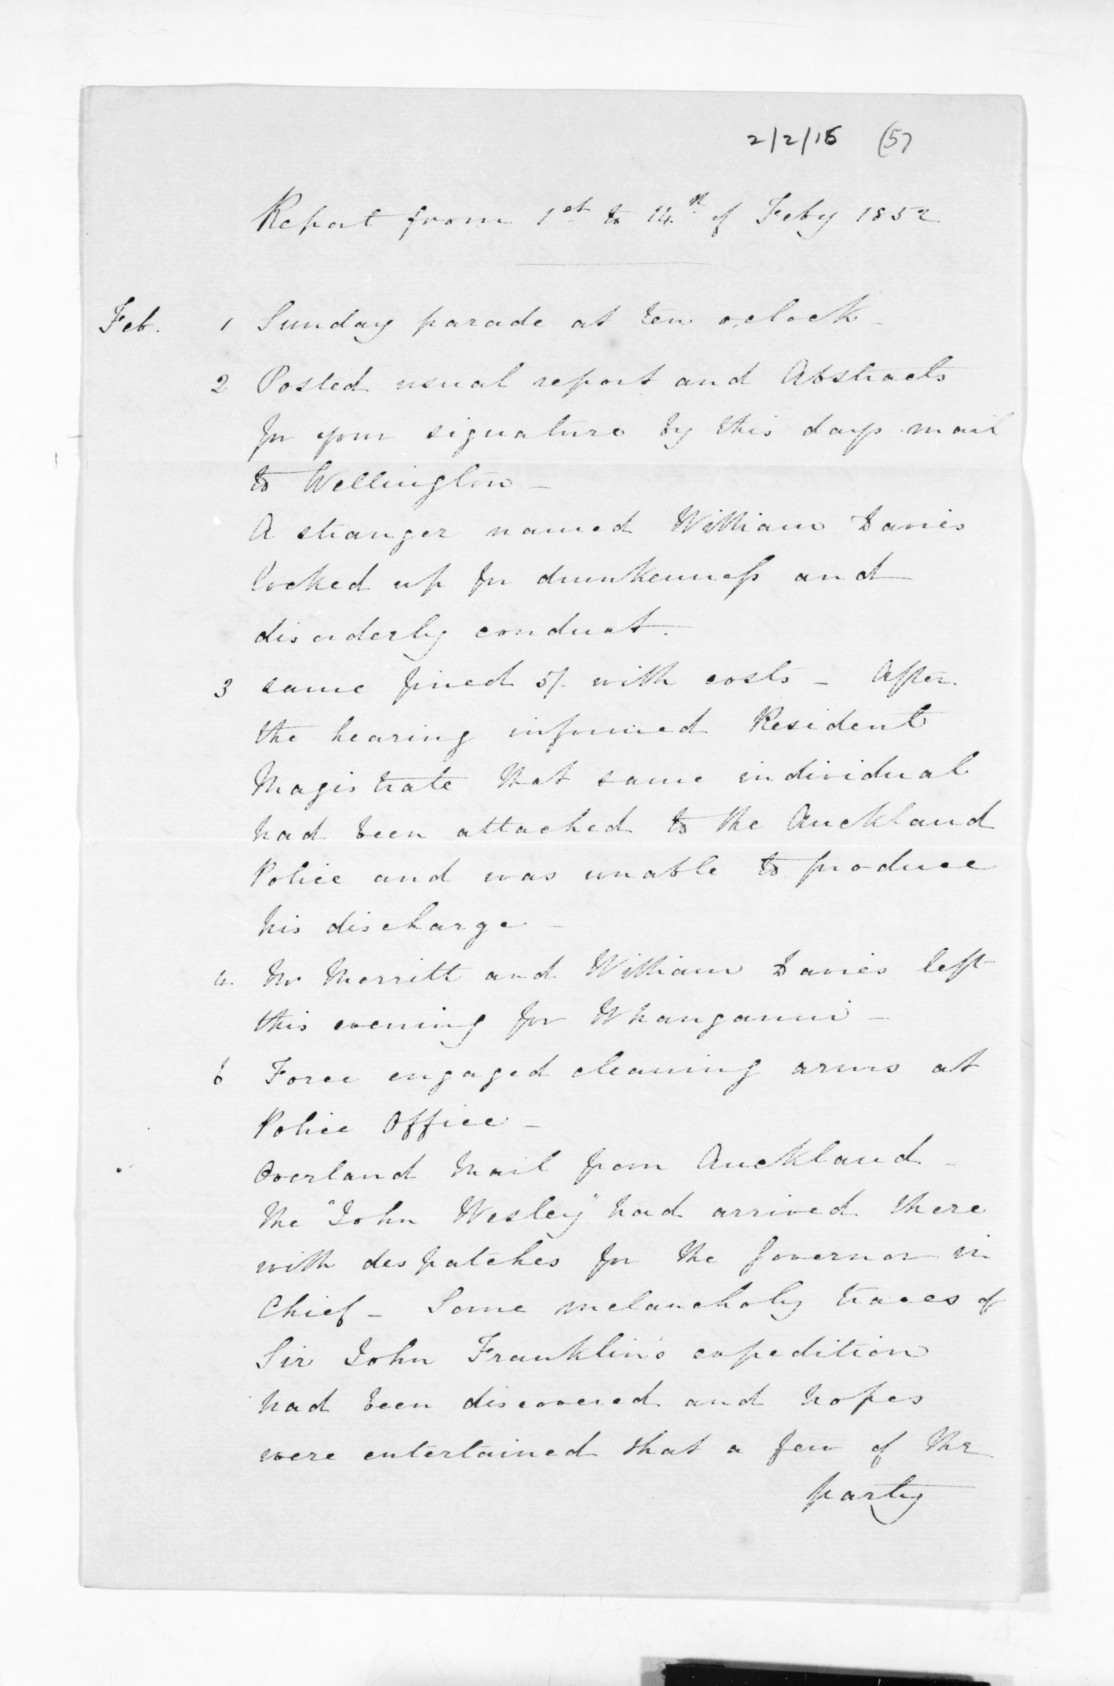 2/2/16 (5)
Report from 1st to 14th of Feby 1852
Feb. 1 Sunday parade at ten o,clock -
2 Posted usual report and Abstracts
for your signature by this days mail
to Wellington -
A stranger named William Davies
locked up for drunkenness and
disorderly conduct.
3 same fined 5/. with costs - After
the hearing informed Resident
Magistrate that same individual
had been attached to the Auckland
Police and was unable to produce
his discharge -
4. Mr Merritt and William Davies left
this evening for Whanganui -
6 Force engaged cleaning arms at
Police Office -
Overland Mail from Auckland -
The "John Wesley" had arrived there
with despatches for the Governor in
Chief - Some melancholy traces of
Sir John Franklin's expedition
had been discovered and hopes
were entertained that a few of the
party